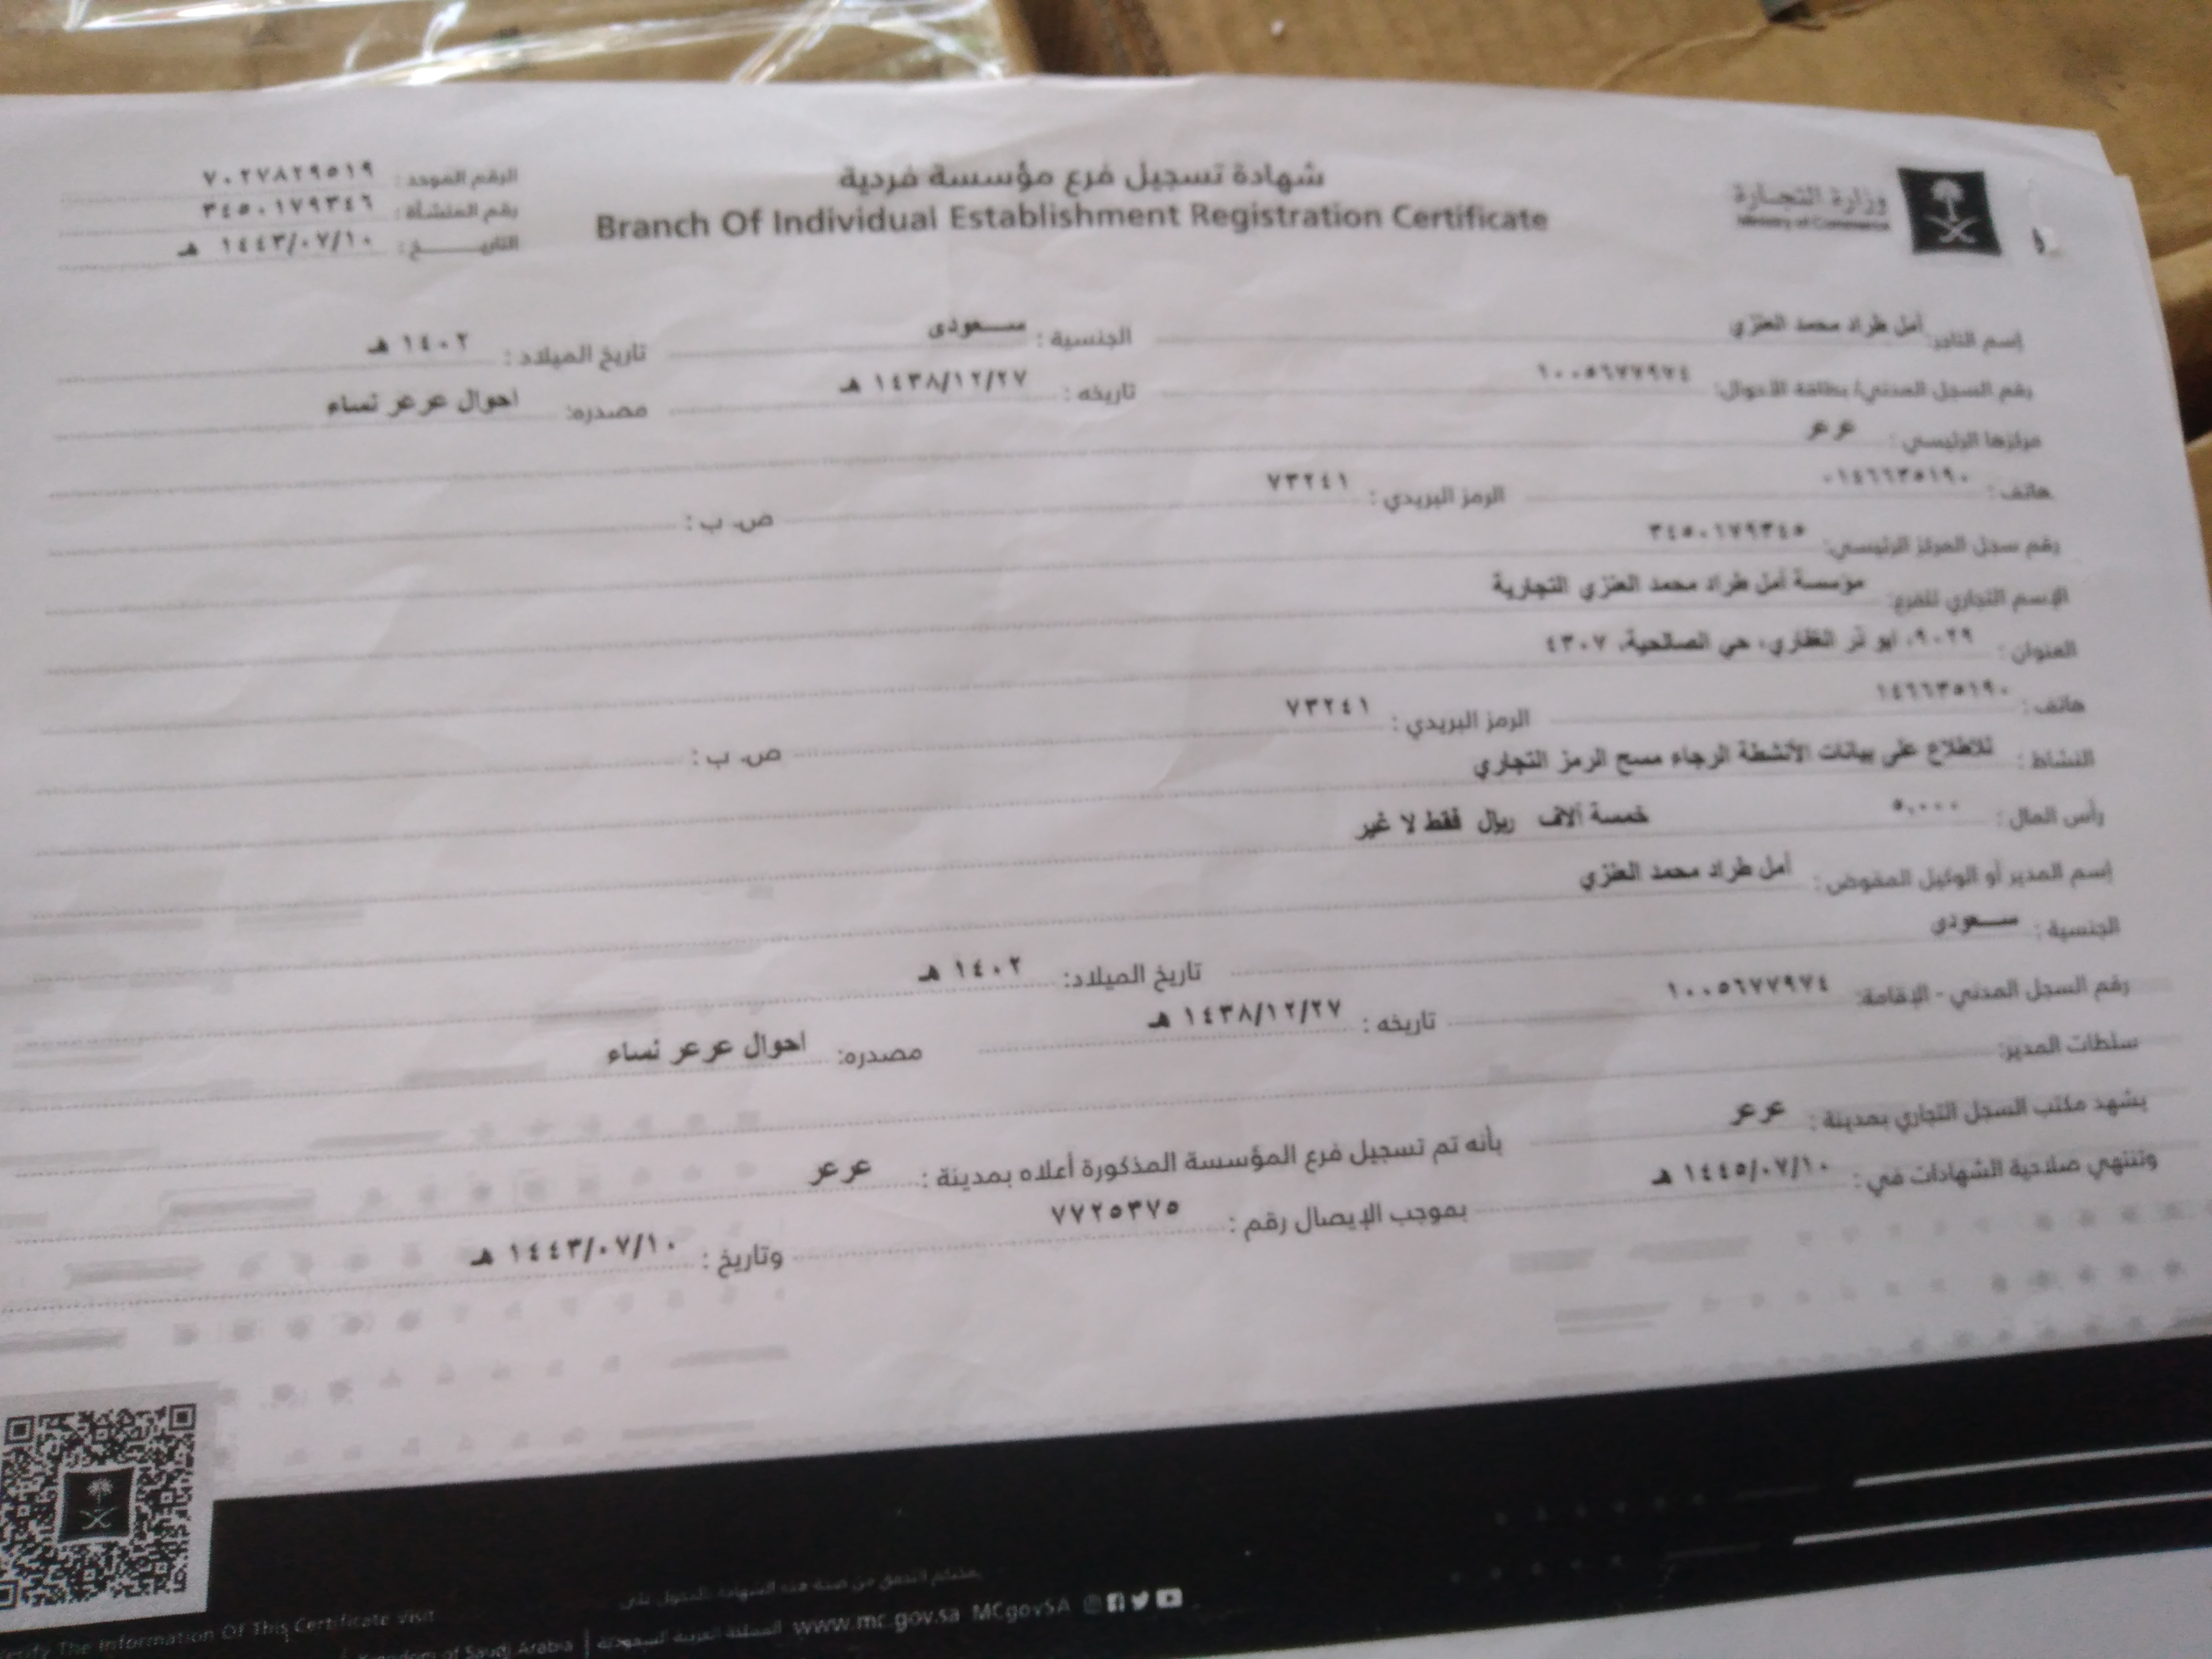 وزارة التجارة
Ministry of Commerce
شهادة تسجيل فرع مؤسسة فردية
Branch Of Individual Establishment Registration Certificate
الرقم الموحد : ٧٠٢٧٨٢٩٥١٩
رقم المنشأة : ٣٤٥٠١٧٩٣٤٦
التاريـــخ : ١٤٤٣/٠٧/١٠ هـ
إسم التاجر: أمل طراد محمد العنزي الجنسية : سـعودى تاريخ الميلاد : ١٤٠٢ هـ
رقم السجل المدني/ بطاقة الأحوال: ١٠٠٥٦٧٧٩٧٤ تاريخه : ١٤٣٨/١٢/٢٧ هـ مصدره: احوال عرعر نساء
مركزها الرئيسي : عرعر
هاتف : ٠١٤٦٦٣٥١٩٠ الرمز البريدي : ٧٣٢٤١ ص. ب :
رقم سجل المركز الرئيسي: ٣٤٥٠١٧٩٣٤٥
الإسم التجاري للفرع: مؤسسة أمل طراد محمد العنزي التجارية
العنوان : ٩٠٢٩، ابو ذر الغفاري، حي الصالحية، ٤٣٠٧
هاتف : ١٤٦٦٣٥١٩٠ الرمز البريدي : ٧٣٢٤١ ص. ب :
النشاط : للاطلاع على بيانات الأنشطة الرجاء مسح الرمز التجاري
رأس المال : ٥,٠٠٠ خمسة ألاف ريال فقط لا غير
إسم المدير أو الوكيل المفوض : أمل طراد محمد العنزي
الجنسية : سـعودي
رقم السجل المدني - الإقامة: ١٠٠٥٦٧٧٩٧٤ تاريخ الميلاد: ١٤٠٢ هـ
سلطات المدير: تاريخه : ١٤٣٨/١٢/٢٧ هـ مصدره: احوال عرعر نساء
يشهد مكتب السجل التجاري بمدينة : عرعر بأنه تم تسجيل فرع المؤسسة المذكورة أعلاه بمدينة : عرعر
وتنتهي صلاحية الشهادات في : ١٤٤٥/٠٧/١٠ هـ بموجب الإيصال رقم : ٧٧٢٥٣٧٥ وتاريخ : ١٤٤٣/٠٧/١٠ هـ
يمكنكم التحقق من صحة هذه الشهادة بالدخول على
The Information Of This Certificate visit
of Saudi Arabia | المملكة العربية السعودية www.mc.gov.sa MCgovSA